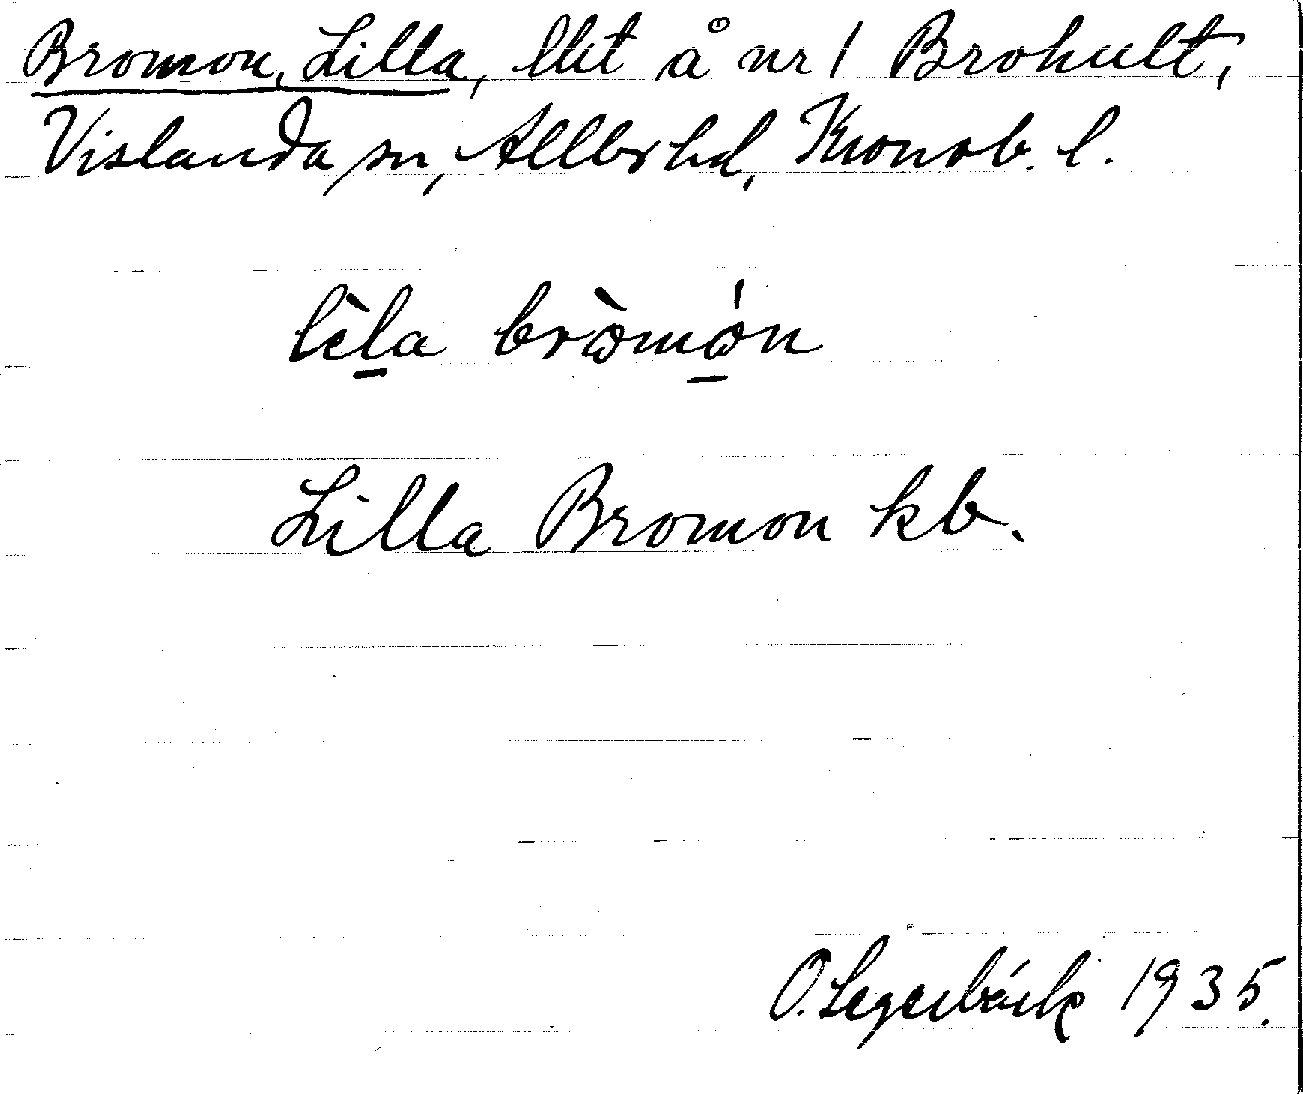 Bromon, Lilla, lht å nr 1 Brohult,
Vislanda sn, Allbo hd, Kronob. l.
lèla bròmón
Lilla Bromon kb.
O. Legerbäck 1935.